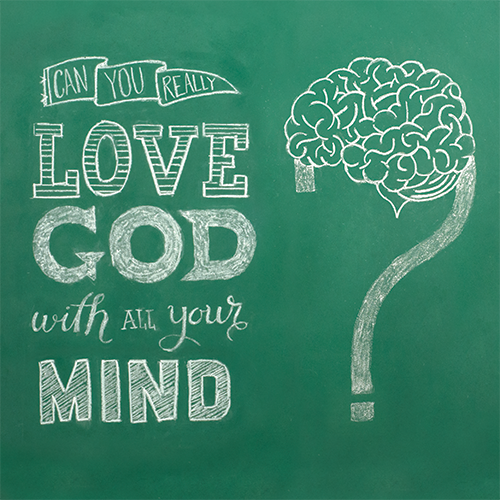 CAN YOU REALLY
LOVE
GOD
with ALL your
MIND
?